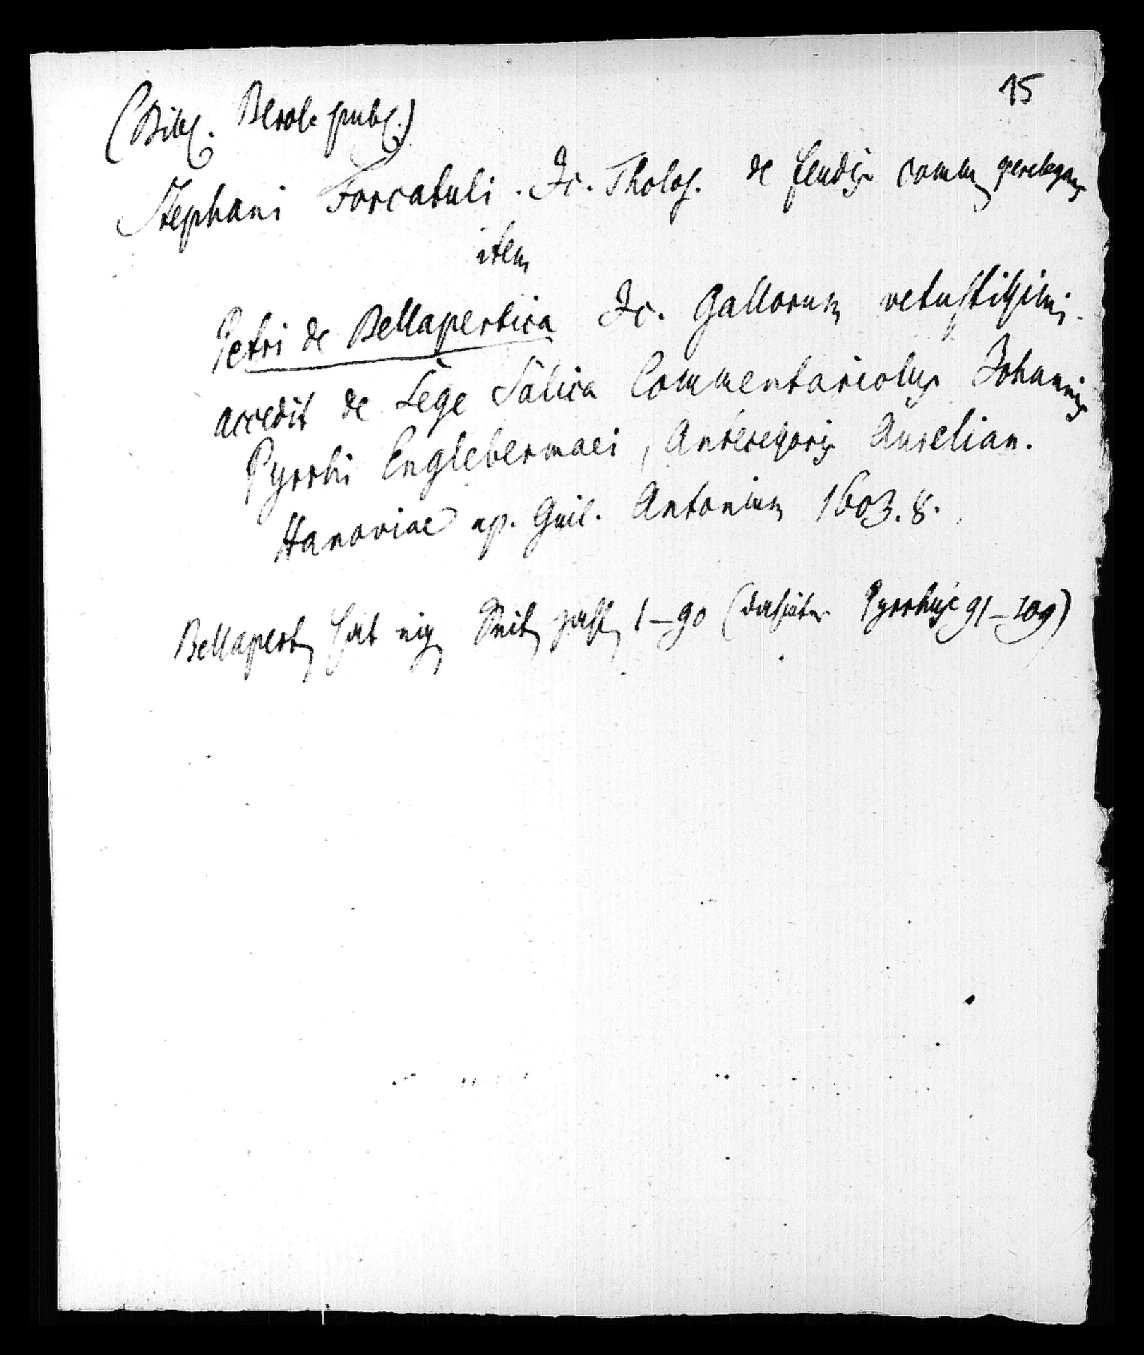 15
(Bibl. Berol. publ.)
Stephani Forcatuli. Jc. Tholos. de feudis comm. perelegans
item
Petri de Bellapertica Jc. Gallorum vetustissimi.
accedit de Lege Salica Commentariolus Johannis
Pyrrhi Englebermaei, Antecessoris Aurelian.
Hanoviae ap. Guil. Antonium 1603. 8.
Bellapert hat Seitenzahlen 1–90 (dahinter Pyrrhus 91–109)